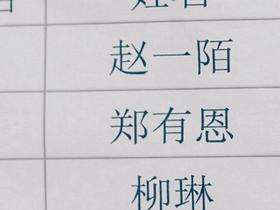 姓名
赵一陌
郑有恩
柳琳